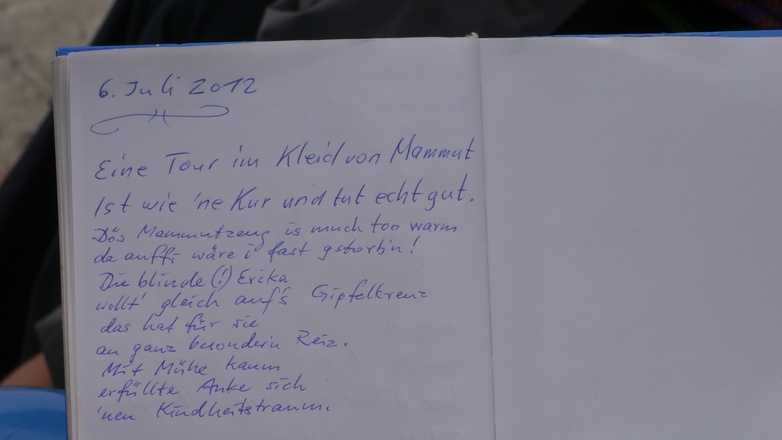 6. Juli 2012
Eine Tour im Kleid von Mammut
Ist wie 'ne Kur und tut echt gut.
Dös Mammutzeug is much too warm
da auffi wäre i fast gstorb'n!
Die blinde (!) Erika
wollt' gleich auf's Gipfelkreuz
das hat für sie
an ganz besondern Reiz.
Mit Mühe kaum
erfüllte Anke sich
'nen Kindheitstraum.